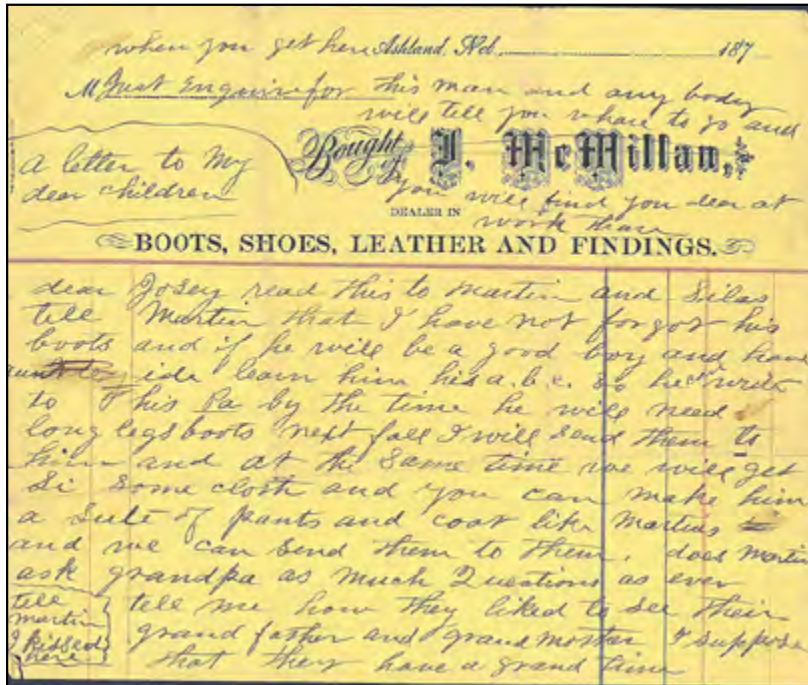 when you get here Ashland, Neb. 187
M Just Enquire for this man and any body
will tell you whare to go and
Bought of J. McMillan,
you will find you dear at
work thare
DEALER IN
BOOTS, SHOES, LEATHER AND FINDINGS.
A letter to My
dear children
dear Josey read this to Martin and Silas
tell Martin that I have not forgot his
boots and if he will be a good boy and have
aunt ida learn him his a.b.c. so he write
to his Pa by the time he will need
long legs boots next fall I will send them to
him and at the same time we will get
Si some cloth and you can make him
a sute of pants and coat like Martins
and we can send them to them. does Martin
ask grandpa as much Questions as ever
tell me how they liked to see their
grand father and grand mother I suppose
that they have a grand time
tell
martin
I kissed
here